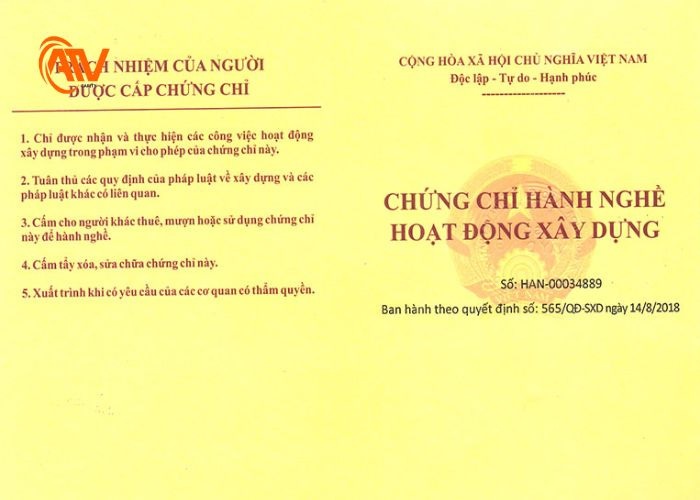 ATV
TRÁCH NHIỆM CỦA NGƯỜI
ĐƯỢC CẤP CHỨNG CHỈ
1. Chỉ được nhận và thực hiện các công việc hoạt động
xây dựng trong phạm vi cho phép của chứng chỉ này.
2. Tuân thủ các quy định của pháp luật về xây dựng và các
pháp luật khác có liên quan.
3. Cấm cho người khác thuê, mượn hoặc sử dụng chứng chỉ
này để hành nghề.
4. Cấm tẩy xóa, sửa chữa chứng chỉ này.
5. Xuất trình khi có yêu cầu của các cơ quan có thẩm quyền.
CỘNG HÒA XÃ HỘI CHỦ NGHĨA VIỆT NAM
Độc lập - Tự do - Hạnh phúc
-------------------
CHỨNG CHỈ HÀNH NGHỀ
HOẠT ĐỘNG XÂY DỰNG
Số: HAN-00034889
Ban hành theo quyết định số: 565/QĐ-SXD ngày 14/8/2018